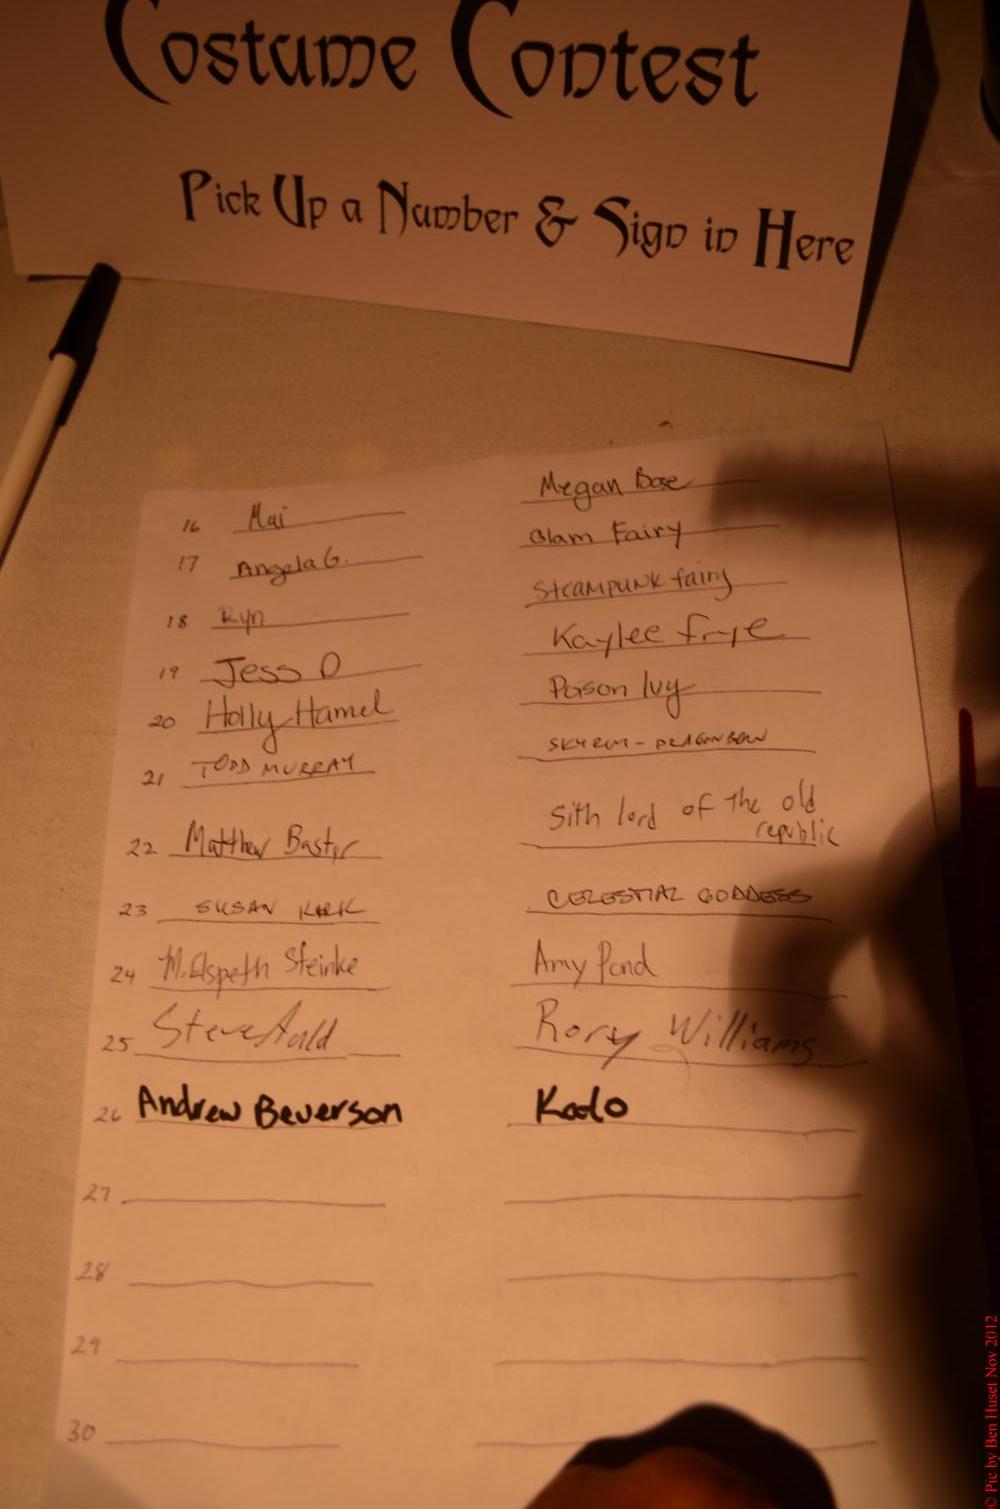 Costume Contest
Pick Up a Number & Sign in Here
16 Mai Megan Bose
17 Angela G. Glam Fairy
18 Ryn Steampunk fairy
19 Jess D Kaylee frye
20 Holly Hamel Poison Ivy
21 TODD MURRAY SKYRIM - DRAGONBORN
22 Matthew Sith lord of the old
republic
23 SUSAN KIRK CELESTIAL GODDESS
24 M. Elspeth Steinke Amy Pond
25 Steve Rory Williams
26 Andrew Beverson Kato
27
28
29
30
© Pic by Ben Huset Nov 2012